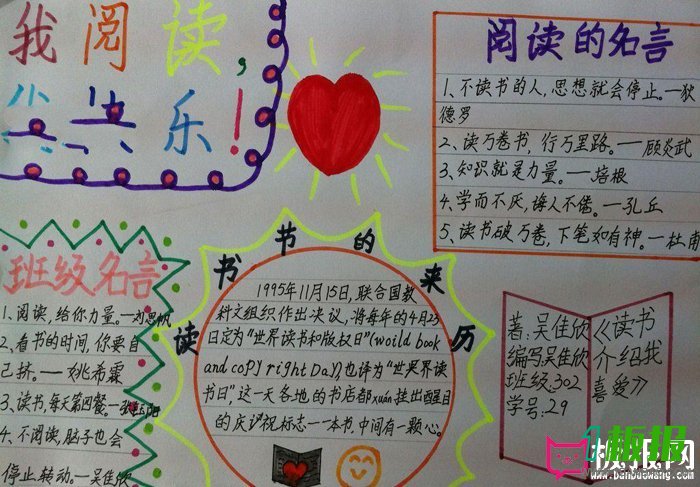 我阅读,
共快乐!
阅读的名言
1、不读书的人,思想就会停止。—狄
德罗
2、读万卷书,行万里路。——顾炎武
3、知识就是力量。——培根
4、学而不厌,诲人不倦。—孔丘
5、读书破万卷,下笔如有神。—杜甫
班级名言
1、阅读,给你力量。
2、看书的时间,你要自
己挤。——姚希霖
3、读书,每天第四餐。
4、不阅读,脑子也会
停止转动。—吴佳欣
读书节的来历
1995年11月15日,联合国教
科文组织作出决议,将每年的4月23
日定为“世界读书和版权日”(woild book
and copy right Day)也译为“世界读
书日”,这一天各地的书店都xuán挂出醒目
的庆祝标志—一本书,中间有一颗心。
著:吴佳欣
编写:吴佳欣
班级:302
学号:29
《读书
介绍我
喜爱》
板报网
www.banbaowang.com